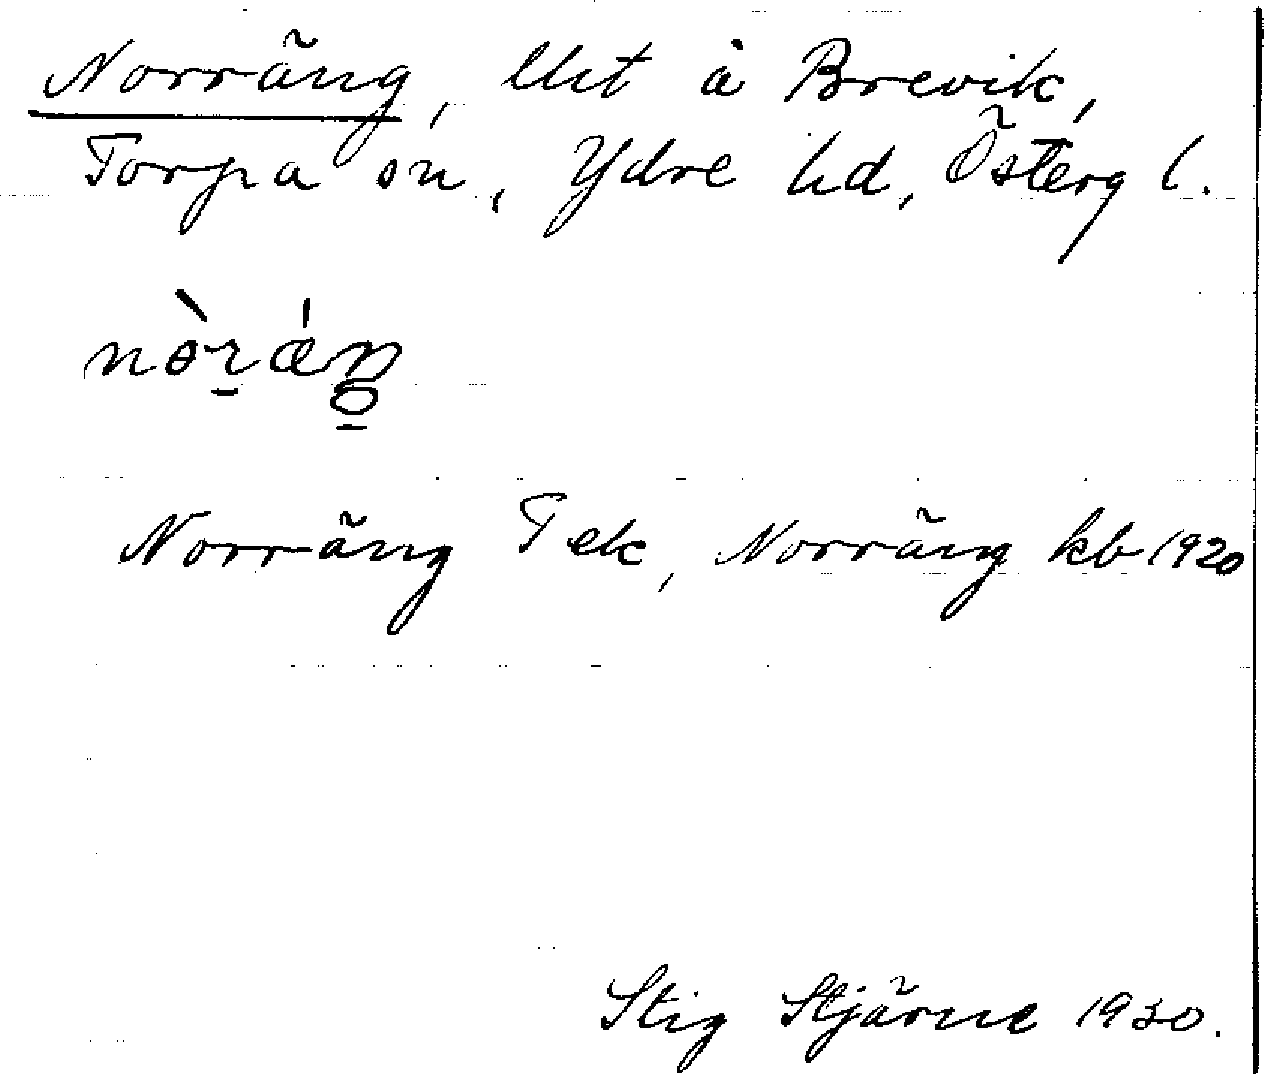 Norräng, lht å Brevik,
Torpa sn, Ydre hd, Österg l.
nòrǽŋ
Norräng Tek, Norräng kb 1920
Stig Stjärne 1930.